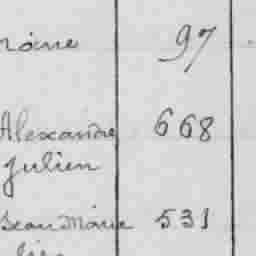 97
Alexandre 668
Julien
Jean Marie 531